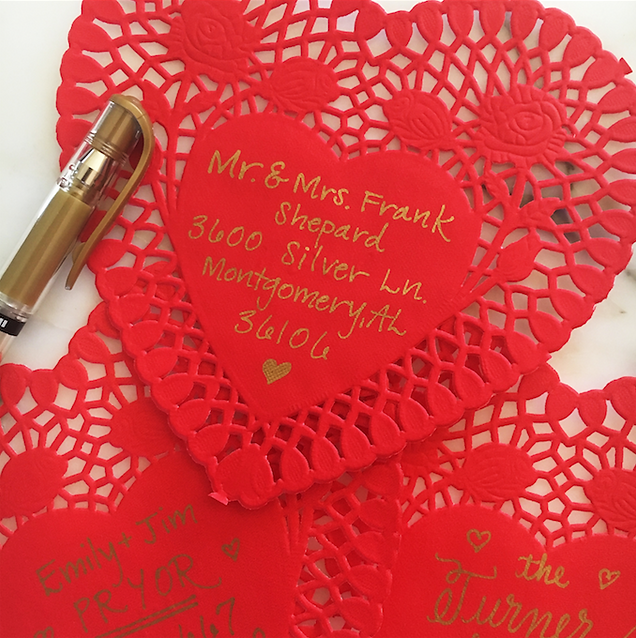 Mr. & Mrs. Frank
Shepard
3600 Silver Ln.
Montgomery, AL
36106
Emily + Jim
PRYOR
the
Turner